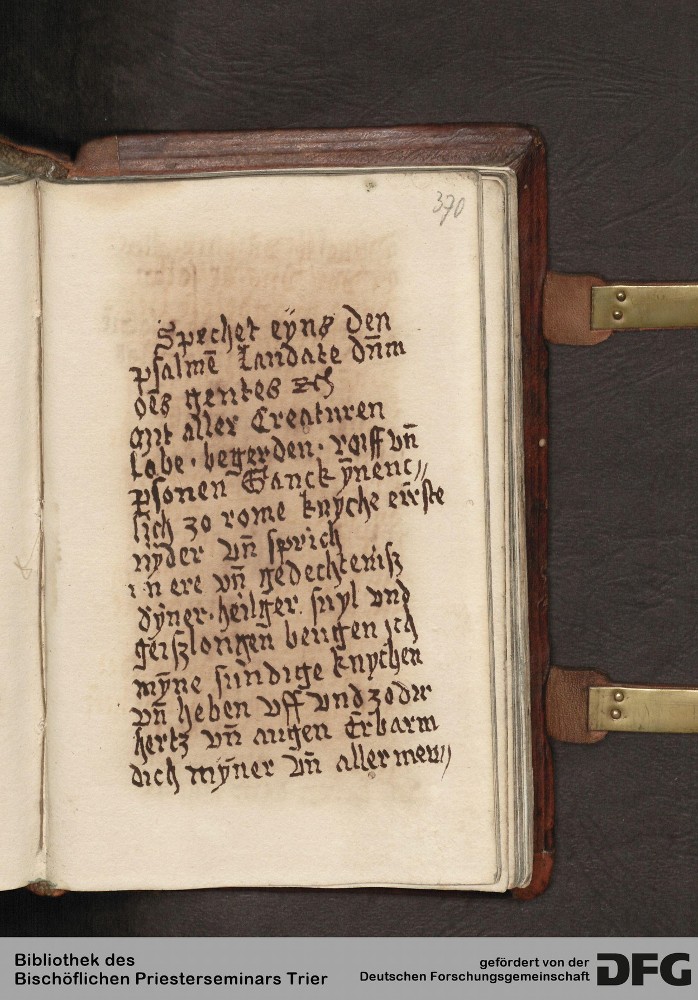 370
Sprchet eyns den
psalmē Laudate dn̄m
oēs gentes ꝛc
Mit aller Creaturen
labe · begerden · roiff vn̄
ꝑsonen Ganck ynenc〃
lich zo rome knyche eirste
nyder vn̄ sprich
in ere vn̄ gedechteniſz
dyner · heilger · suyl vnd
geiſzlongen beugen ich
myne sundige knychen
vn̄ heben vff vnd zo dir
hertz vn̄ augen Erbarm
dich myner vn̄ aller men〃
Bibliothek des
Bischöflichen Priesterseminars Trier
gefördert von der
Deutschen Forschungsgemeinschaft
DFG